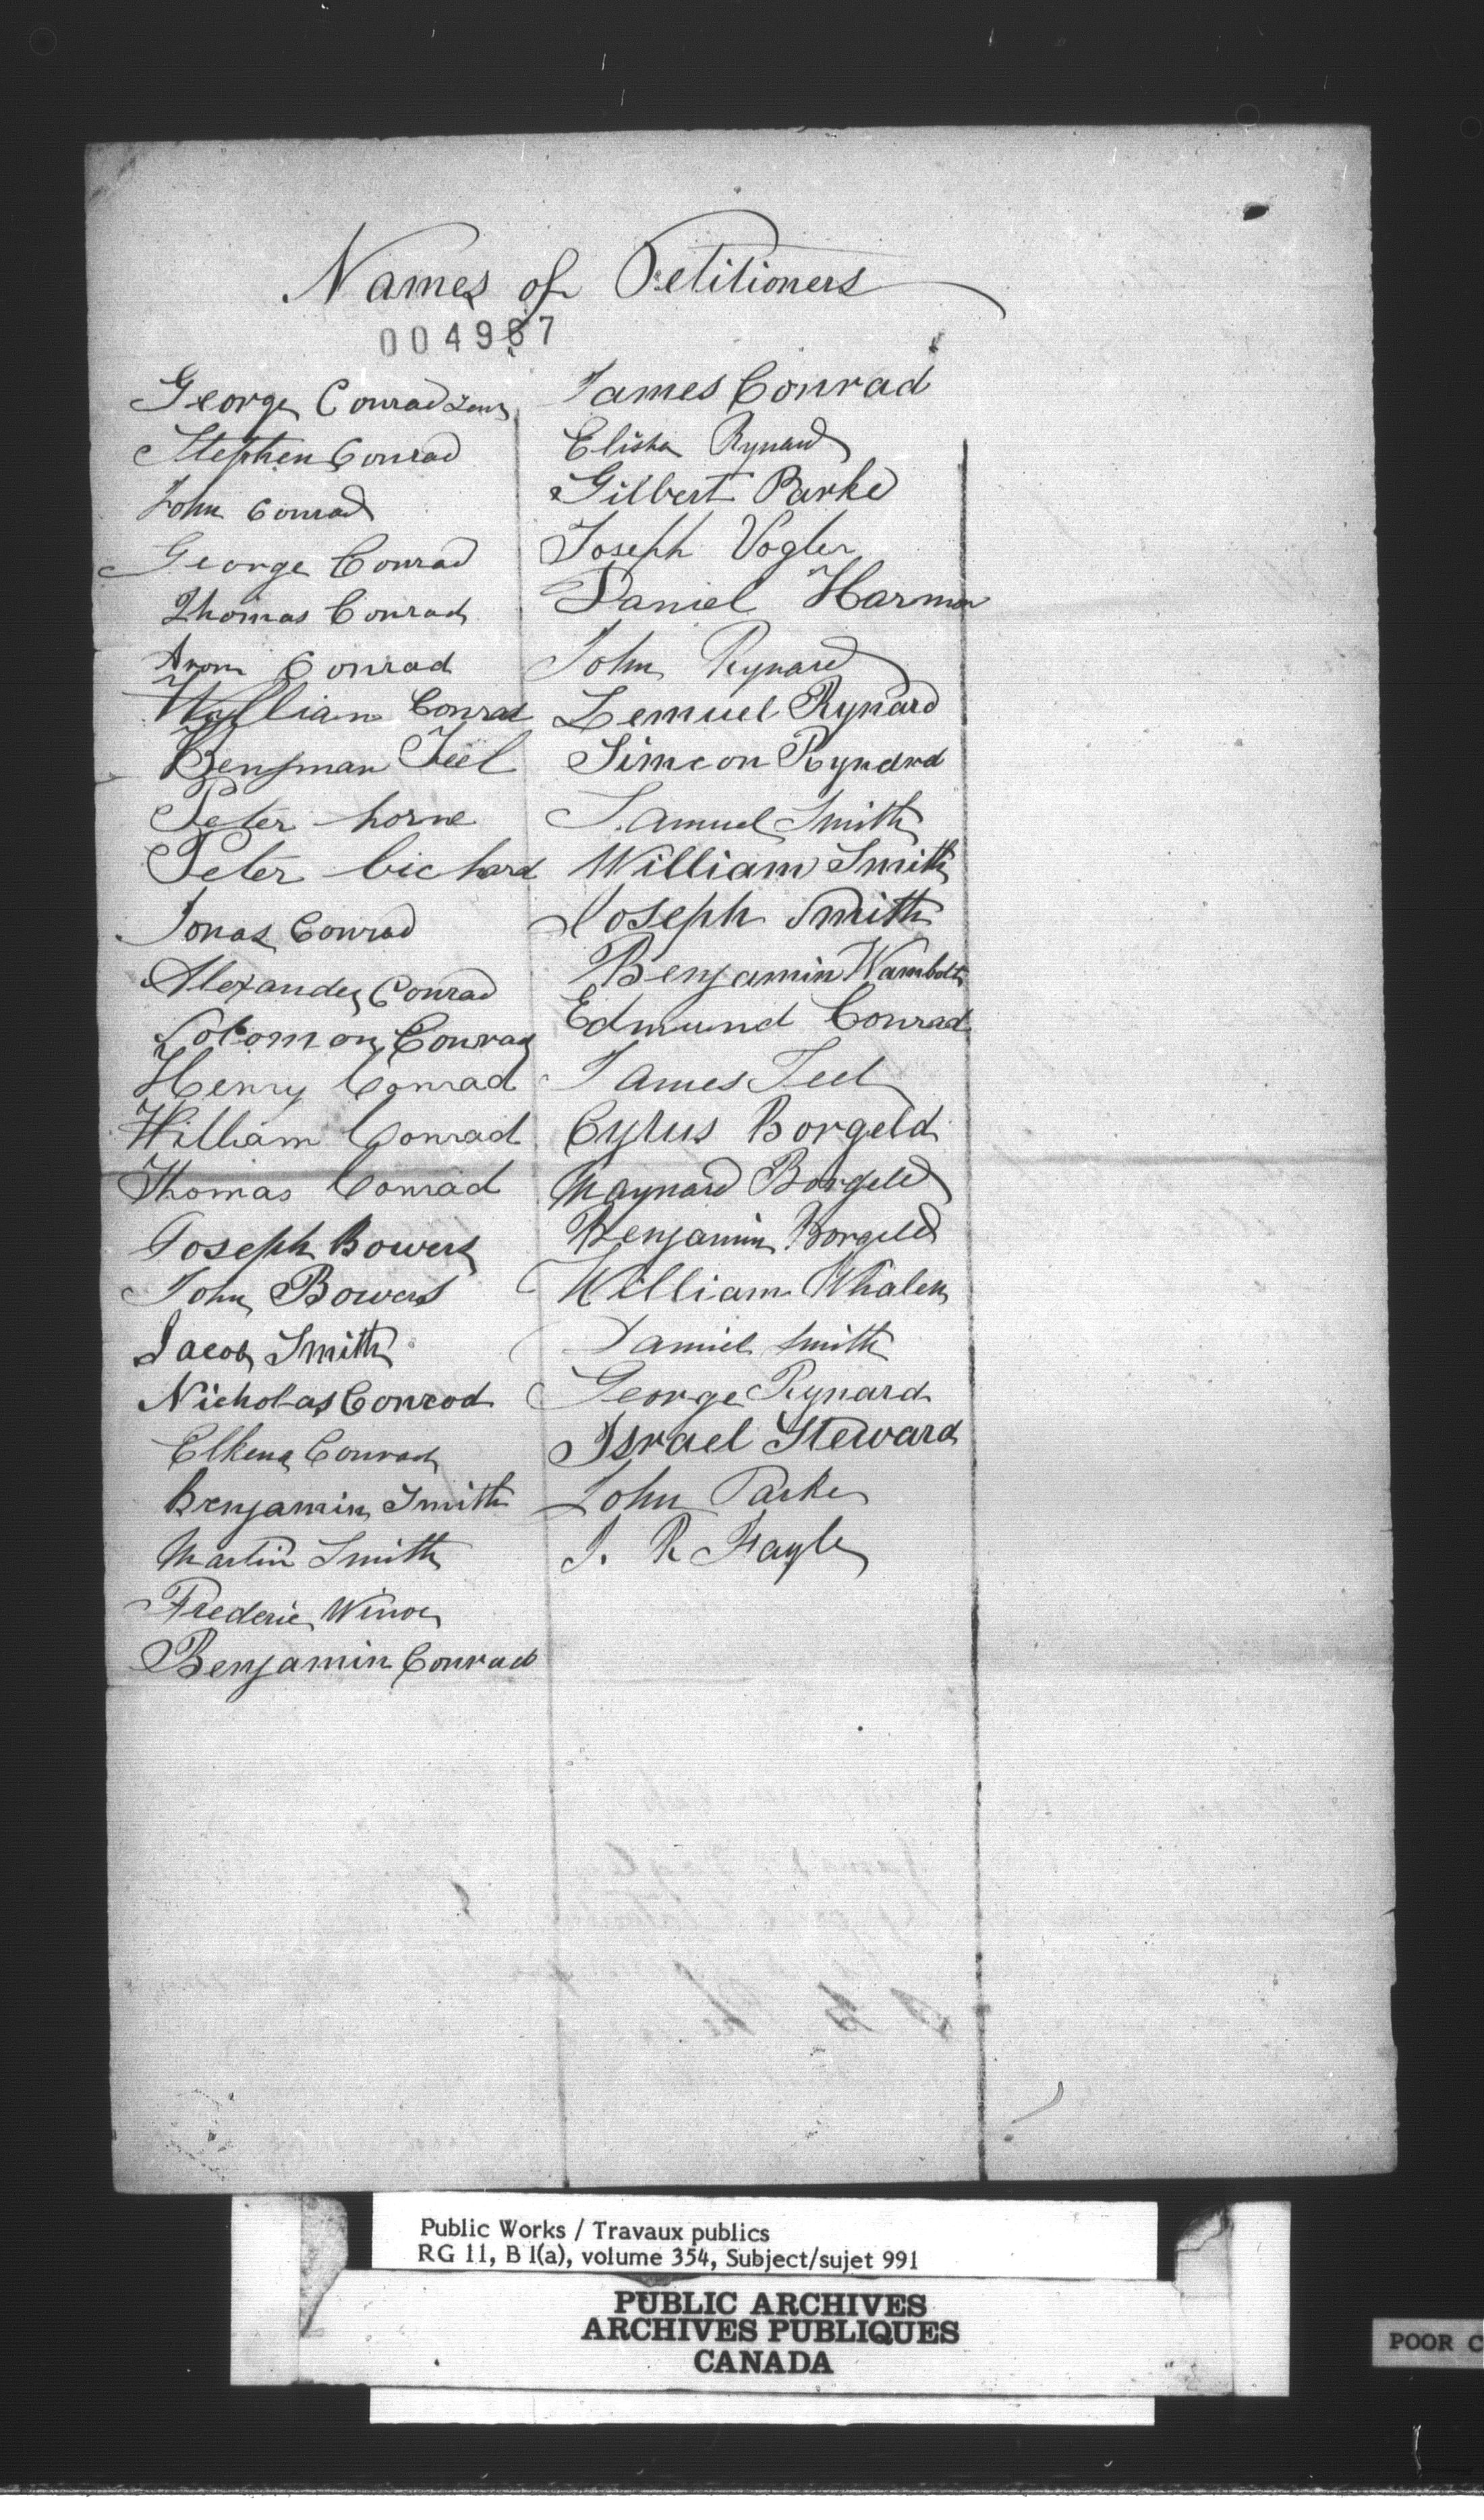 Names of Petitioners
004987
George Conrad Senr
Stephen Conrad
John Conrad
George Conrad
Thomas Conrad
Aron Conrad
William Conrad
Benjman Teel
Peter horne
Peter Cichard
Jonas Conrad
Alexander Conrad
Solomon Conrad
Henry Conrad
William Conrad
Thomas Conrad
Joseph Bowers
John Bowers
Jacob Smith
Nicholas Conrod
Elkena Conrad
Benjamin Smith
Martin Smith
Frederic
Benjamin Conrad
James Conrad
Elisha Rynard
Gilbert Parke
Joseph Vogler
Daniel Harmon
John Rynard
Lemuel Rynard
Simeon Rynard
Samuel Smith
William Smith
Joseph Smith
Benjamin Wambolt
Edmund Conrad
James Teel
Cyrus Borgeld
Maynard Borgeld
Benjamin Borgeld
William Whalen
Daniel Smith
George Rynard
Israel Steward
John Parke
J. R Fayle
Public Works / Travaux publics
RG 11, B 1(a), volume 354, Subject/sujet 991
PUBLIC ARCHIVES
ARCHIVES PUBLIQUES
CANADA
POOR C